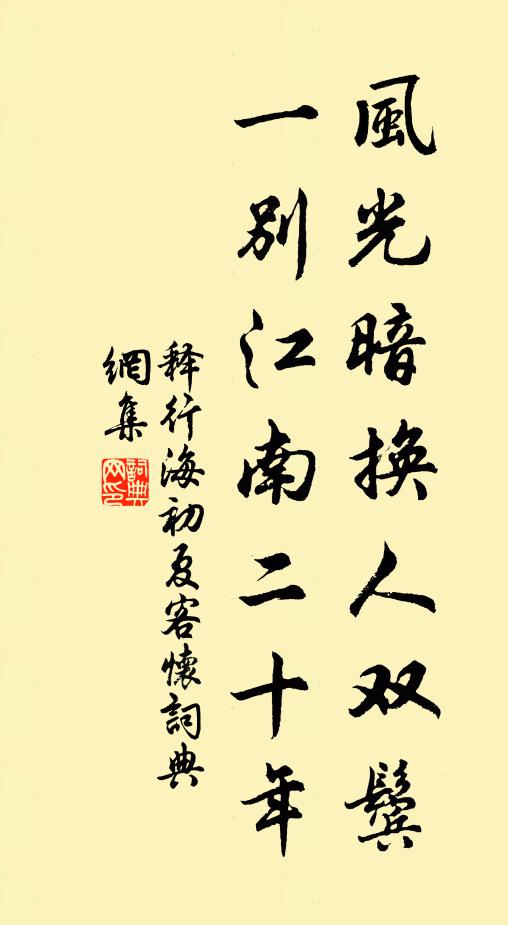 風光暗换人双鬓
一别江南二十年
释行海初夏客懷詞典
網集
詞典
网印